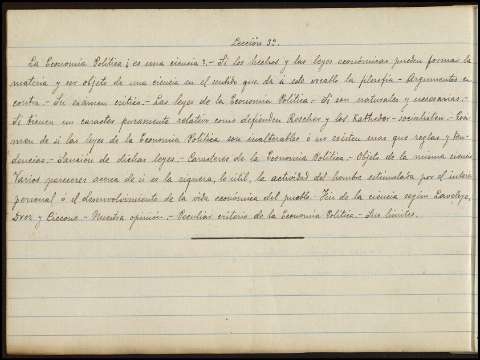 Lección 3ª.
La Economía Política ¿es una ciencia?.- Si los hechos y las leyes económicas pueden formar la
materia y ser objeto de una ciencia en el sentido que da á este vocablo la filosofía.- Argumentos en
contra.- Su examen crítico.- Las leyes de la Economía Política.- Si son naturales y necesarias.-
Si tienen un caracter puramente relativo como defienden Roscher y los Kathedersocialisten.- Exa-
men de si las leyes de la Economía Política son inalterables ó no existen mas que reglas y ten-
dencias.- Sanción de dichas leyes.- Caracteres de la Economía Política.- Objeto de la misma ciencia
Varios pareceres acerca de si es la riqueza, lo útil, la actividad del hombre estimulada por el interes
personal ó el desenvolvimiento de la vida económica del pueblo.- Fin de la ciencia según Laveleye,
Droz y Ciccone.- Nuestra opinión.- Peculiar criterio de la Economía Política.- Sus límites.